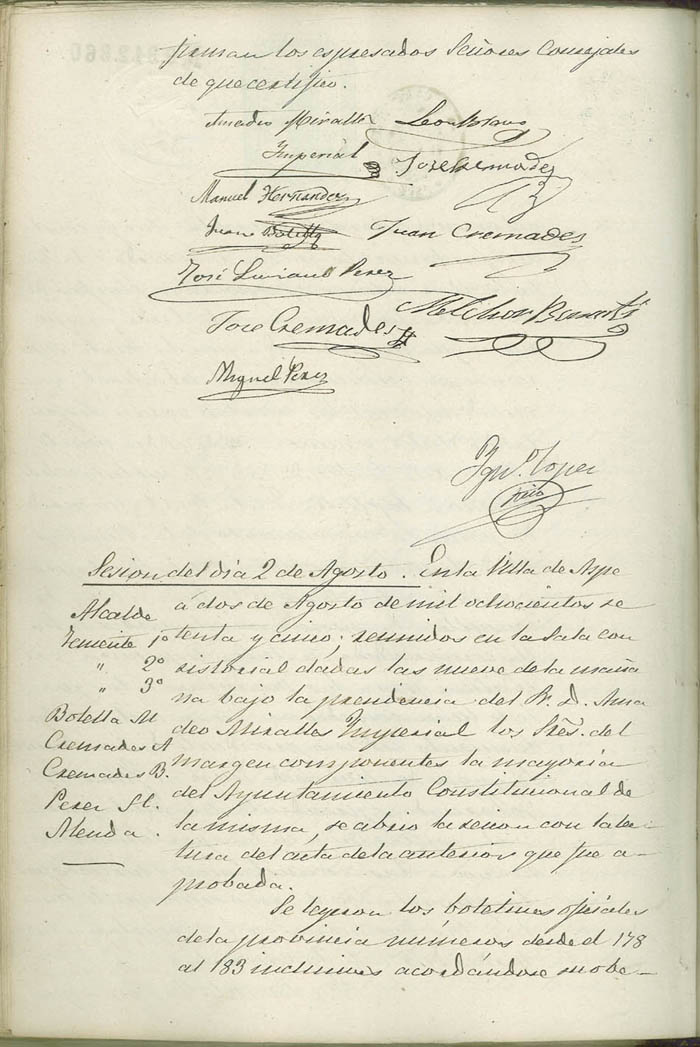 firman los espresados Señores Concejales
de que certifico.
Amadeo Miralles
Imperial
José Cremades
Manuel Hernandez
Juan Botella
Juan Cremades
José Luciano Perez
José Cremades
Melchor
Miguel Perez
Ign.º Lopez
Srio
Sesion del dia 2 de Agosto. En la Villa de Aspe
á dos de Agosto de mil ochocientos se
tenta y cinco; reunidos en la Sala con
sistorial dadas las nueve de la maña
na bajo la presidencia del Sr. D. Ama
deo Miralles Imperial los Sres. del
margen componentes la mayoria
del Ayuntamiento Constitucional de
la misma, se abrio la sesion con la lec-
tura del acta de la anterior que fue a-
probada.
Alcalde
Teniente 1º
" 2º
" 3º
Botella M
Cremades A
Cremades B.
Perez
Alenda.
Se leyeron los boletines oficiales
de la provincia números desde el 178
al 183 inclusives acordándose su obe-